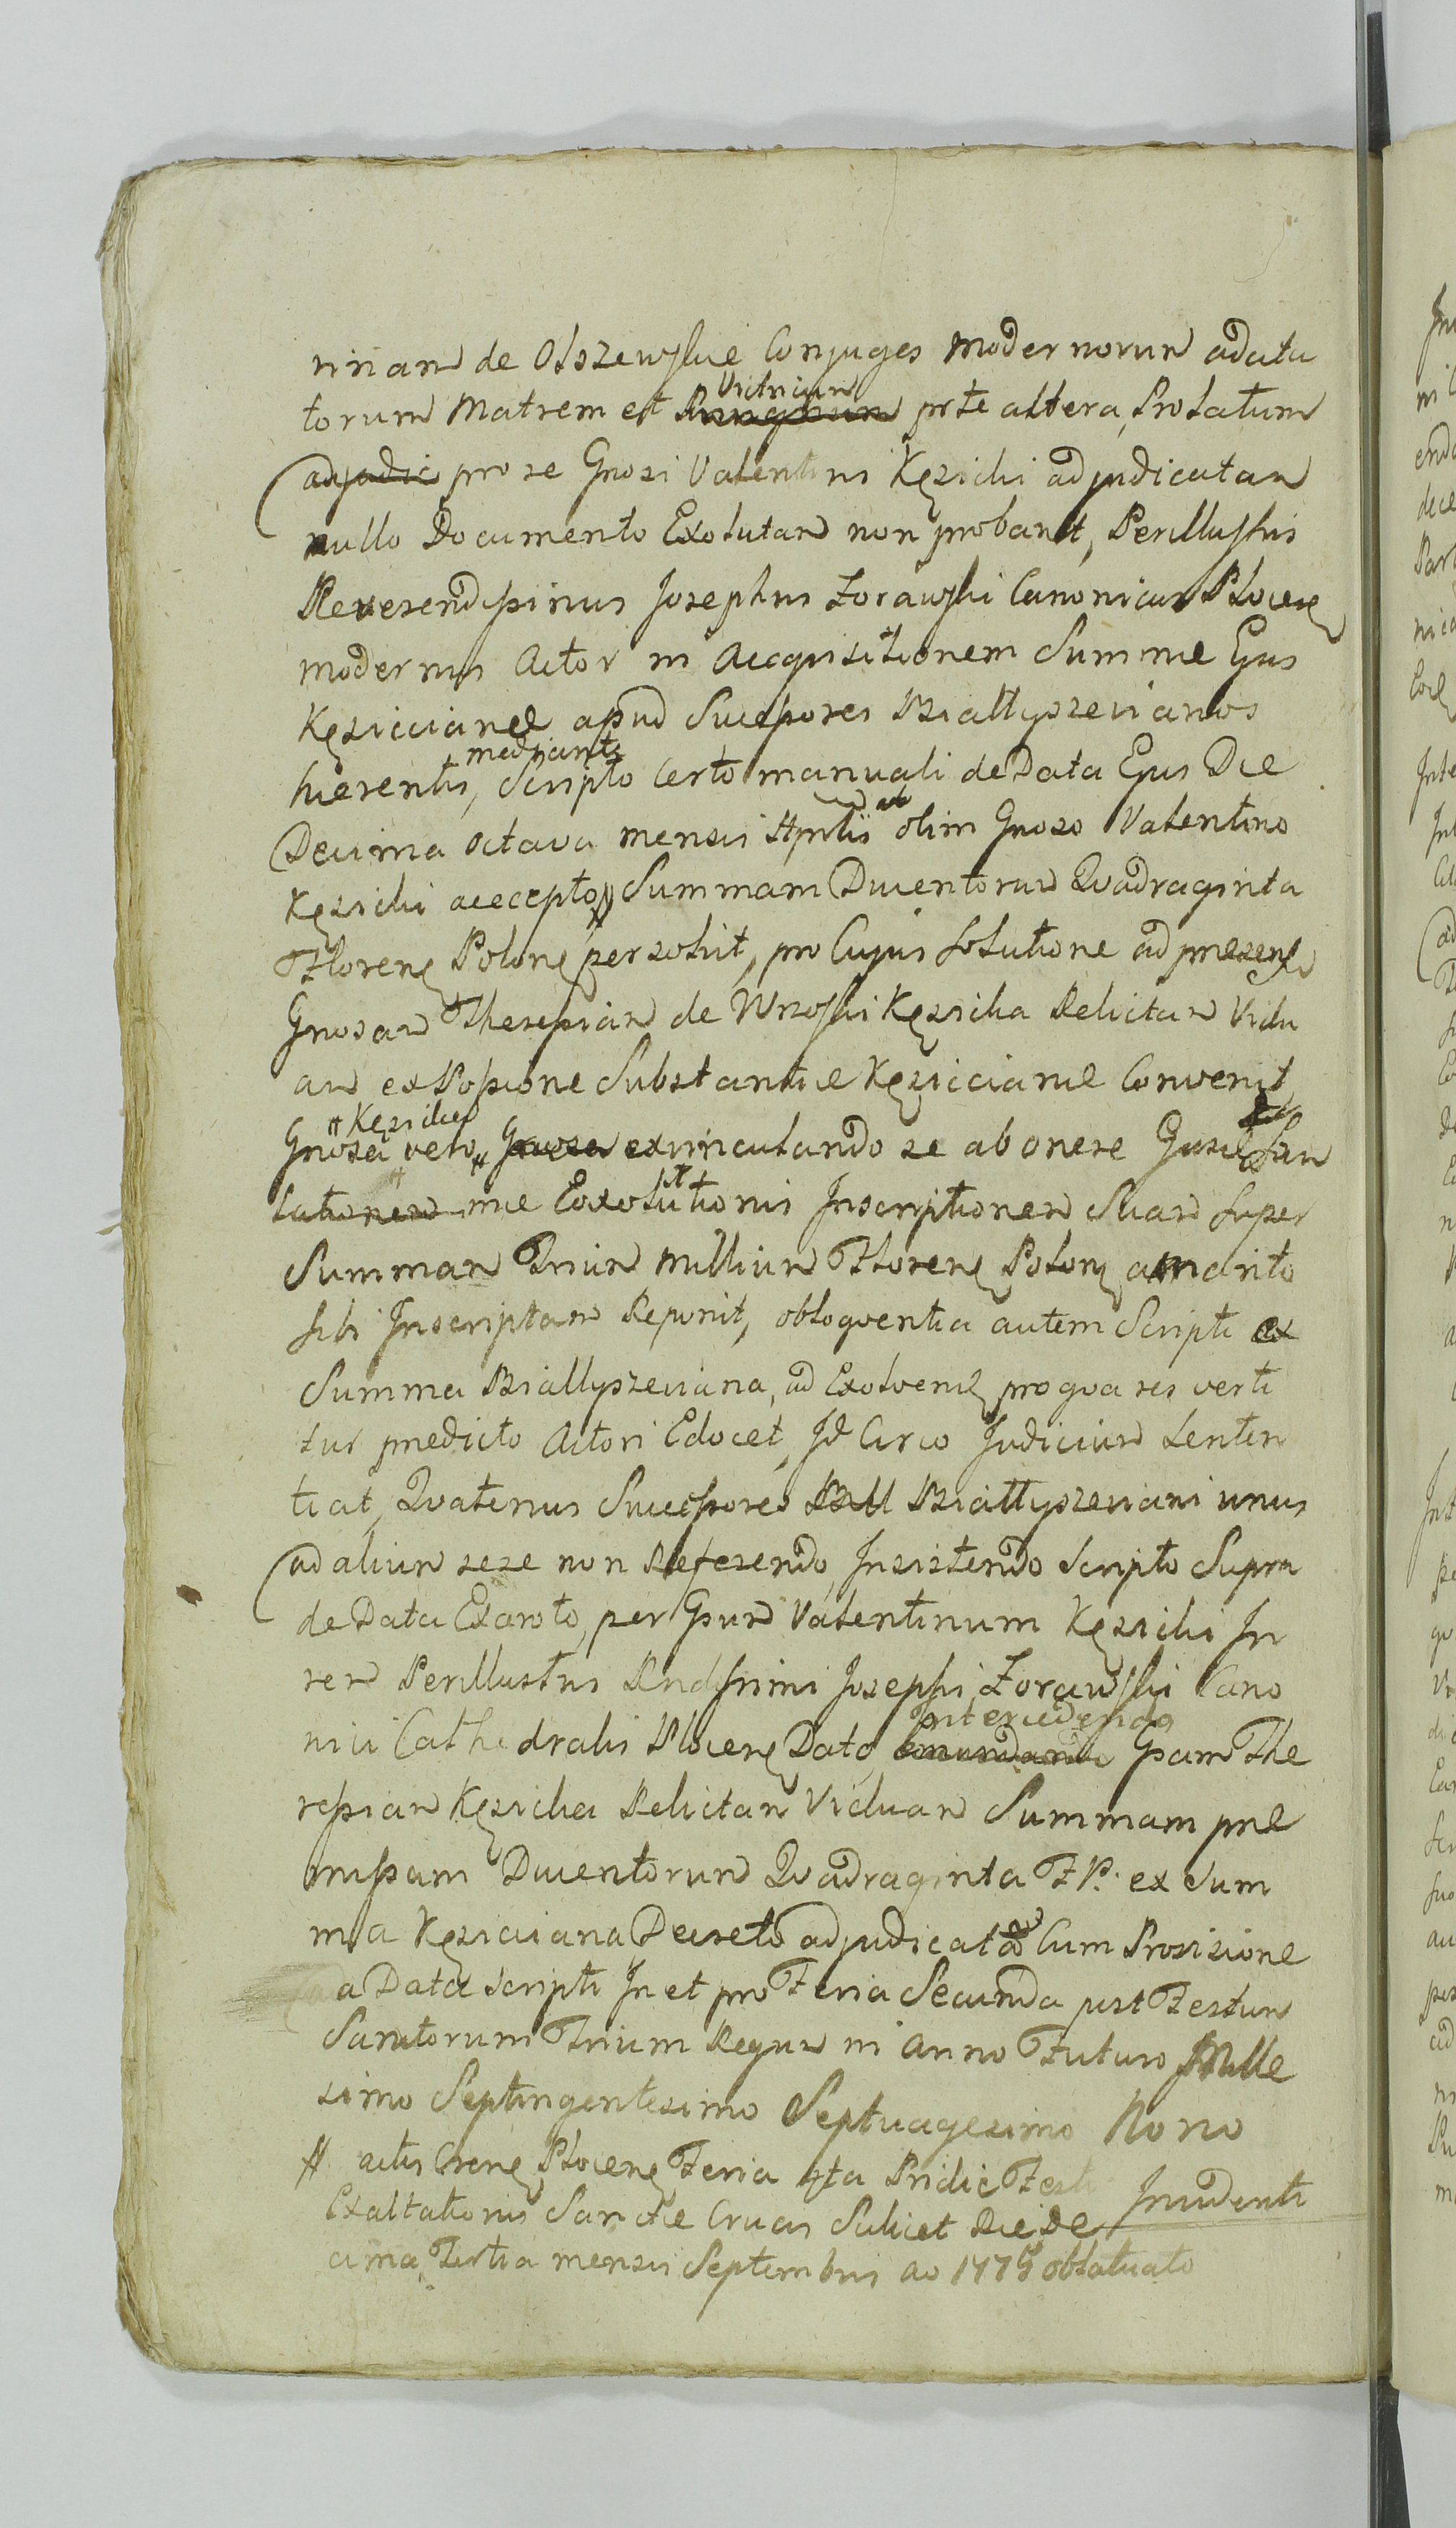 nnam de Olszewskie Conjuges modernorum adcita
torum Matrem et Vitricum prte altera, Prolatum
adjudic pro se Gnosi Valentini Kęsicki adjudicatam
nullo Documento Exolutam non probant, Perillustris
Reverendissimus Josephus Zorawski Canonicus Plocen
modernus Actor in Acquisitionem Summae Gnis
Kęsiccianae apud Successores Biallyszevianos
hierentis, mediante Scripto certo manuali de Data Ejus Die
Decima octava mensis Aprilis ab olim Gnoso Valentino
Kęsicki accepto # Summam Ducentorum Quadraginta
Floren Polon persolvit, pro Cujus Solutione ad praesens
Gnosam Theressiam de Wroski Kęsicka Relictam Vidu
am ex Possione Substantiae Kęsiccianae Convenit
Gnosa # Kęsicka vero, exvinculando se ab onere
mae Exolutionis Inscriptionem Suam super
Summam Trium Millium Floren Polon a marito
sibi Inscriptam Reponit, obloquentia autem Scripti ex
Summa Biallyszeviana, ad Exolven pro qva res verti
tur predicto Actori Edocet, Id Circo Judicium Senten
tiat, Qvatenus Successores Biallyszeviani unus
ad alium sese non Referendo, Insistendo Scripto Supra
de Data Exarato, per Gsum Valentinum Kęsicki In
rem Perillustris Rndssimi Josephi Zorawski Cano
nici Cathedralis Plocen Dato, Intercedendo Gsam The
ressiam Kęsicka Relictam Viduam Summam prae
missam Ducentorum Qvadraginta F P. ex Sum
ma Kęsiciana Decreto adjudicata Cum Provisione
a Data Scripti In et pro Feria Secunda post Festum
Sanctorum Trium Regum in Anno Futuro Mille
simo Septingentesimo Septuagesimo Nono
# actis Plocen Feria 4ta Pridie Festi
Exaltationis Sanctae Crucis Scilicet Die De
cima Tertia mensis Septembris ao oblatuato